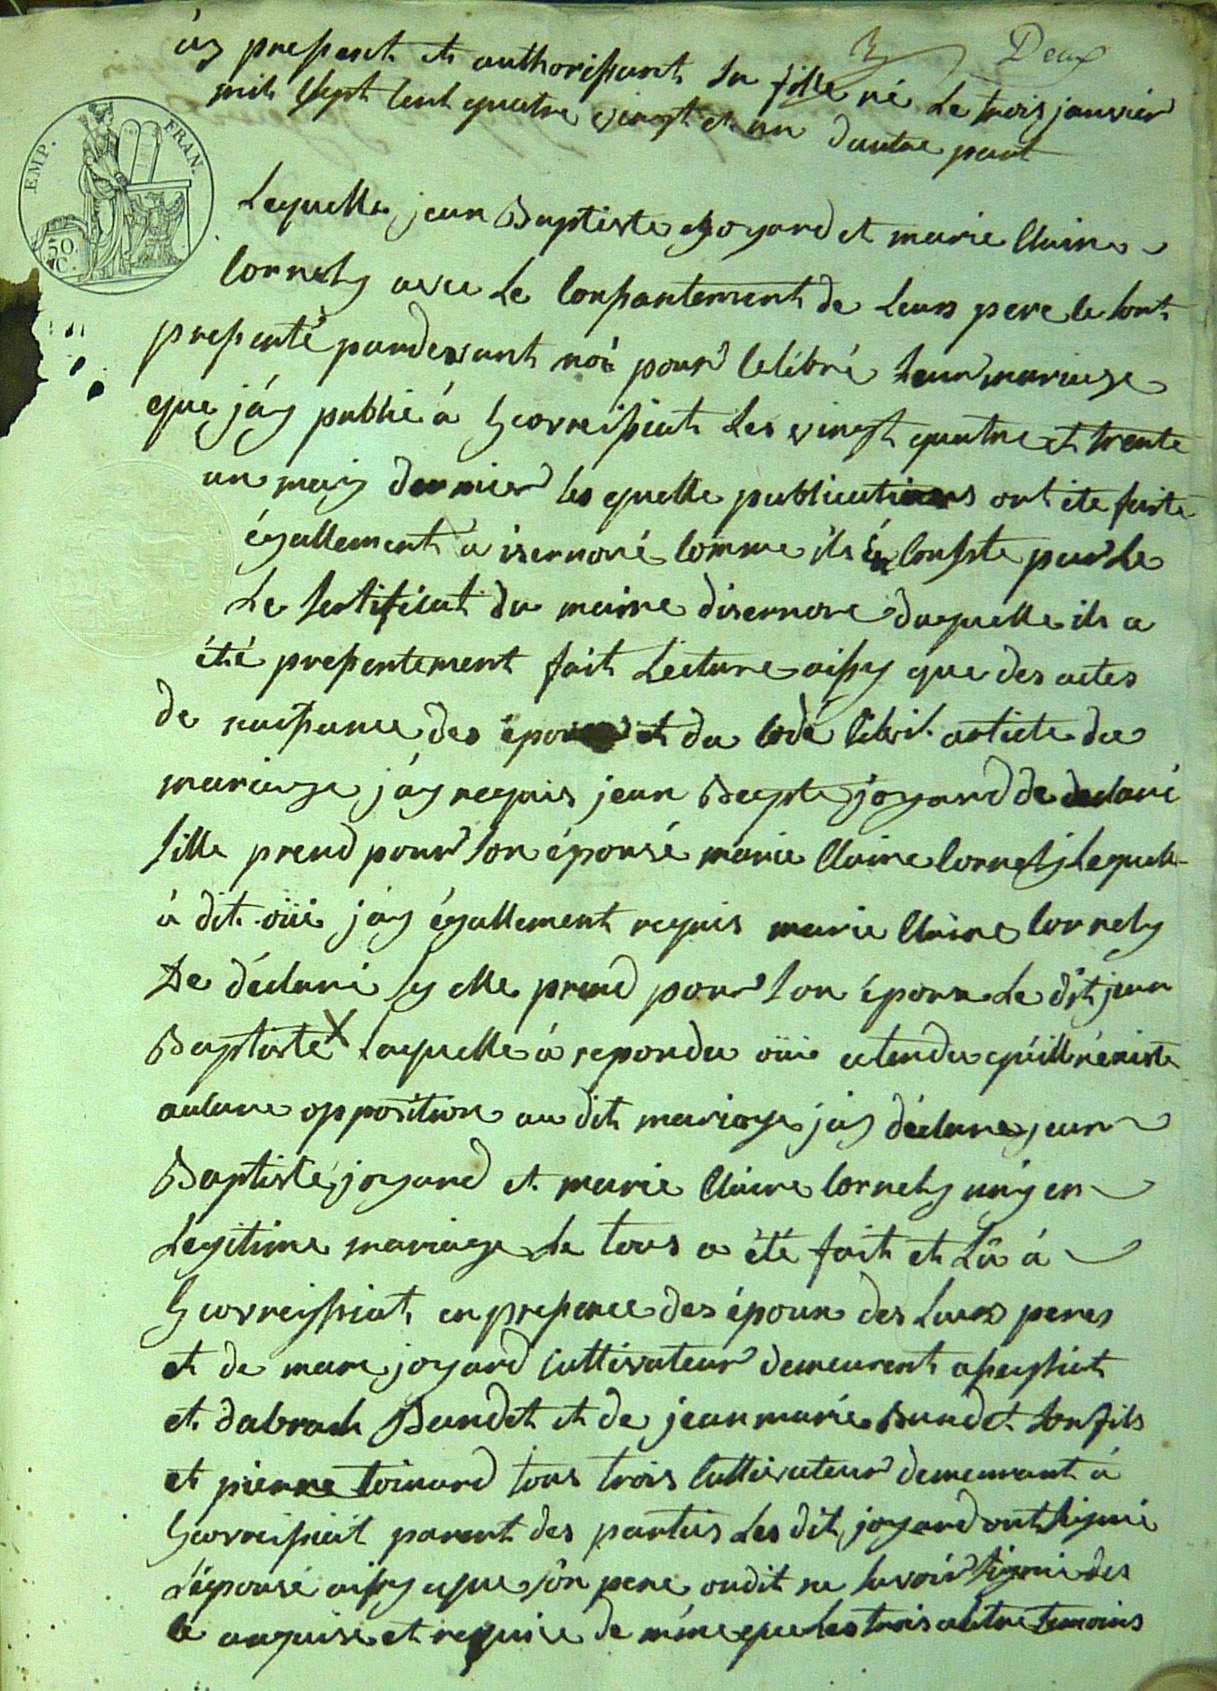 Deux
icy present et authorisant sa fille né le trois janvier
mil sept cent quatre vingt et un dautre part
EMP. FRAN.
50 C.
Lequelle jean Baptiste joyard et marie Claire
Cornety avec le consantement de leurs pere ce sont
presenté pardevant noú pour celébré leur mariage
que jáy publié á Geovreissiat les vingt quatre et trente
un may dernier les quelle publications ont ete faite
égallement a isernore comme ils en conste par le
le sertificat du maire disernore duquelle ils a
été presentement fait lecture aissy que des actes
de naissance des époux et du code civil article du
mariage jáy requis jean Bapte joyard de declaré
sille prend pour son épousé marie Claire Cornety lequelle
á dit oüi jáy égallement requis marie Claire Cornety
De déclaré sy elle prend pour son époux le dit jean
Baptiste X laquelle á repondu oüi atendu quíll néxiste
aucune opposition au dit mariage jáy déclare jean
Baptiste joyard et marie Claire Cornety uny en
Legitime mariage le tous a été fait et Lû á
Geovreissiat en presence des époux des leurs peres
et de marc joyard cultivateur demeurent a
et dabrach Bandet et de jean marie Bandet son fils
et pierre toinard tous trois cultivateur demeurant á
Geovreissiat parent des parties les dit joyard ont signé
l'épousé aissy que sôn pere ondit ne savoir signé des
ce anquise et requise de même que les trois autre temoins